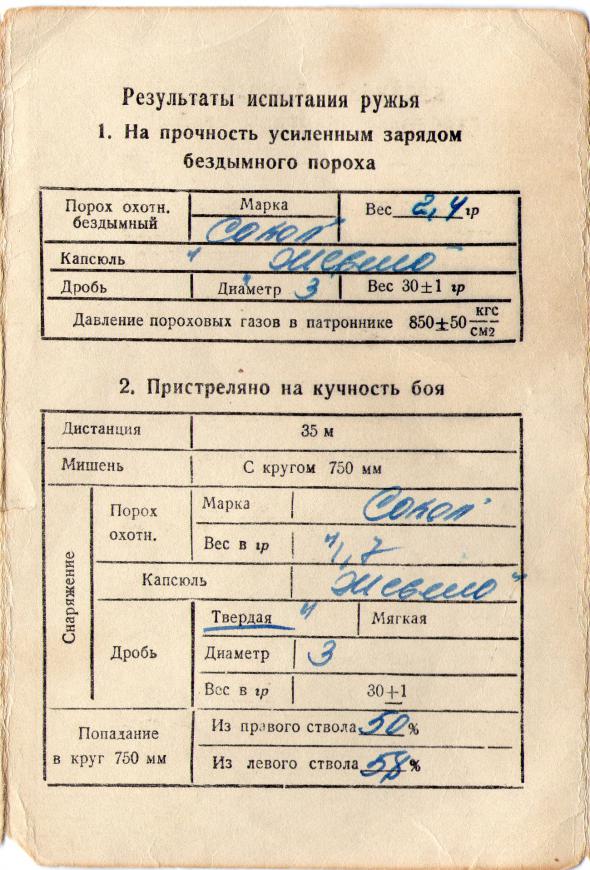 Результаты испытания ружья
1. На прочность усиленным зарядом
бездымного пороха
Порох охотн. бездымный Марка "Сокол" Вес 2,4 гр
Капсюль "Жевело"
Дробь Диаметр 3 Вес 30±1 гр
Давление пороховых газов в патроннике 850±50 кгс/см2
2. Пристреляно на кучность боя
Дистанция 35 м
Мишень С кругом 750 мм
Снаряжение
Порох охотн. Марка "Сокол"
Вес в гр 1,7
Капсюль "Жевело"
Дробь Твердая Мягкая
Диаметр 3
Вес в гр 30±1
Попадание в круг 750 мм
Из правого ствола 50%
Из левого ствола %